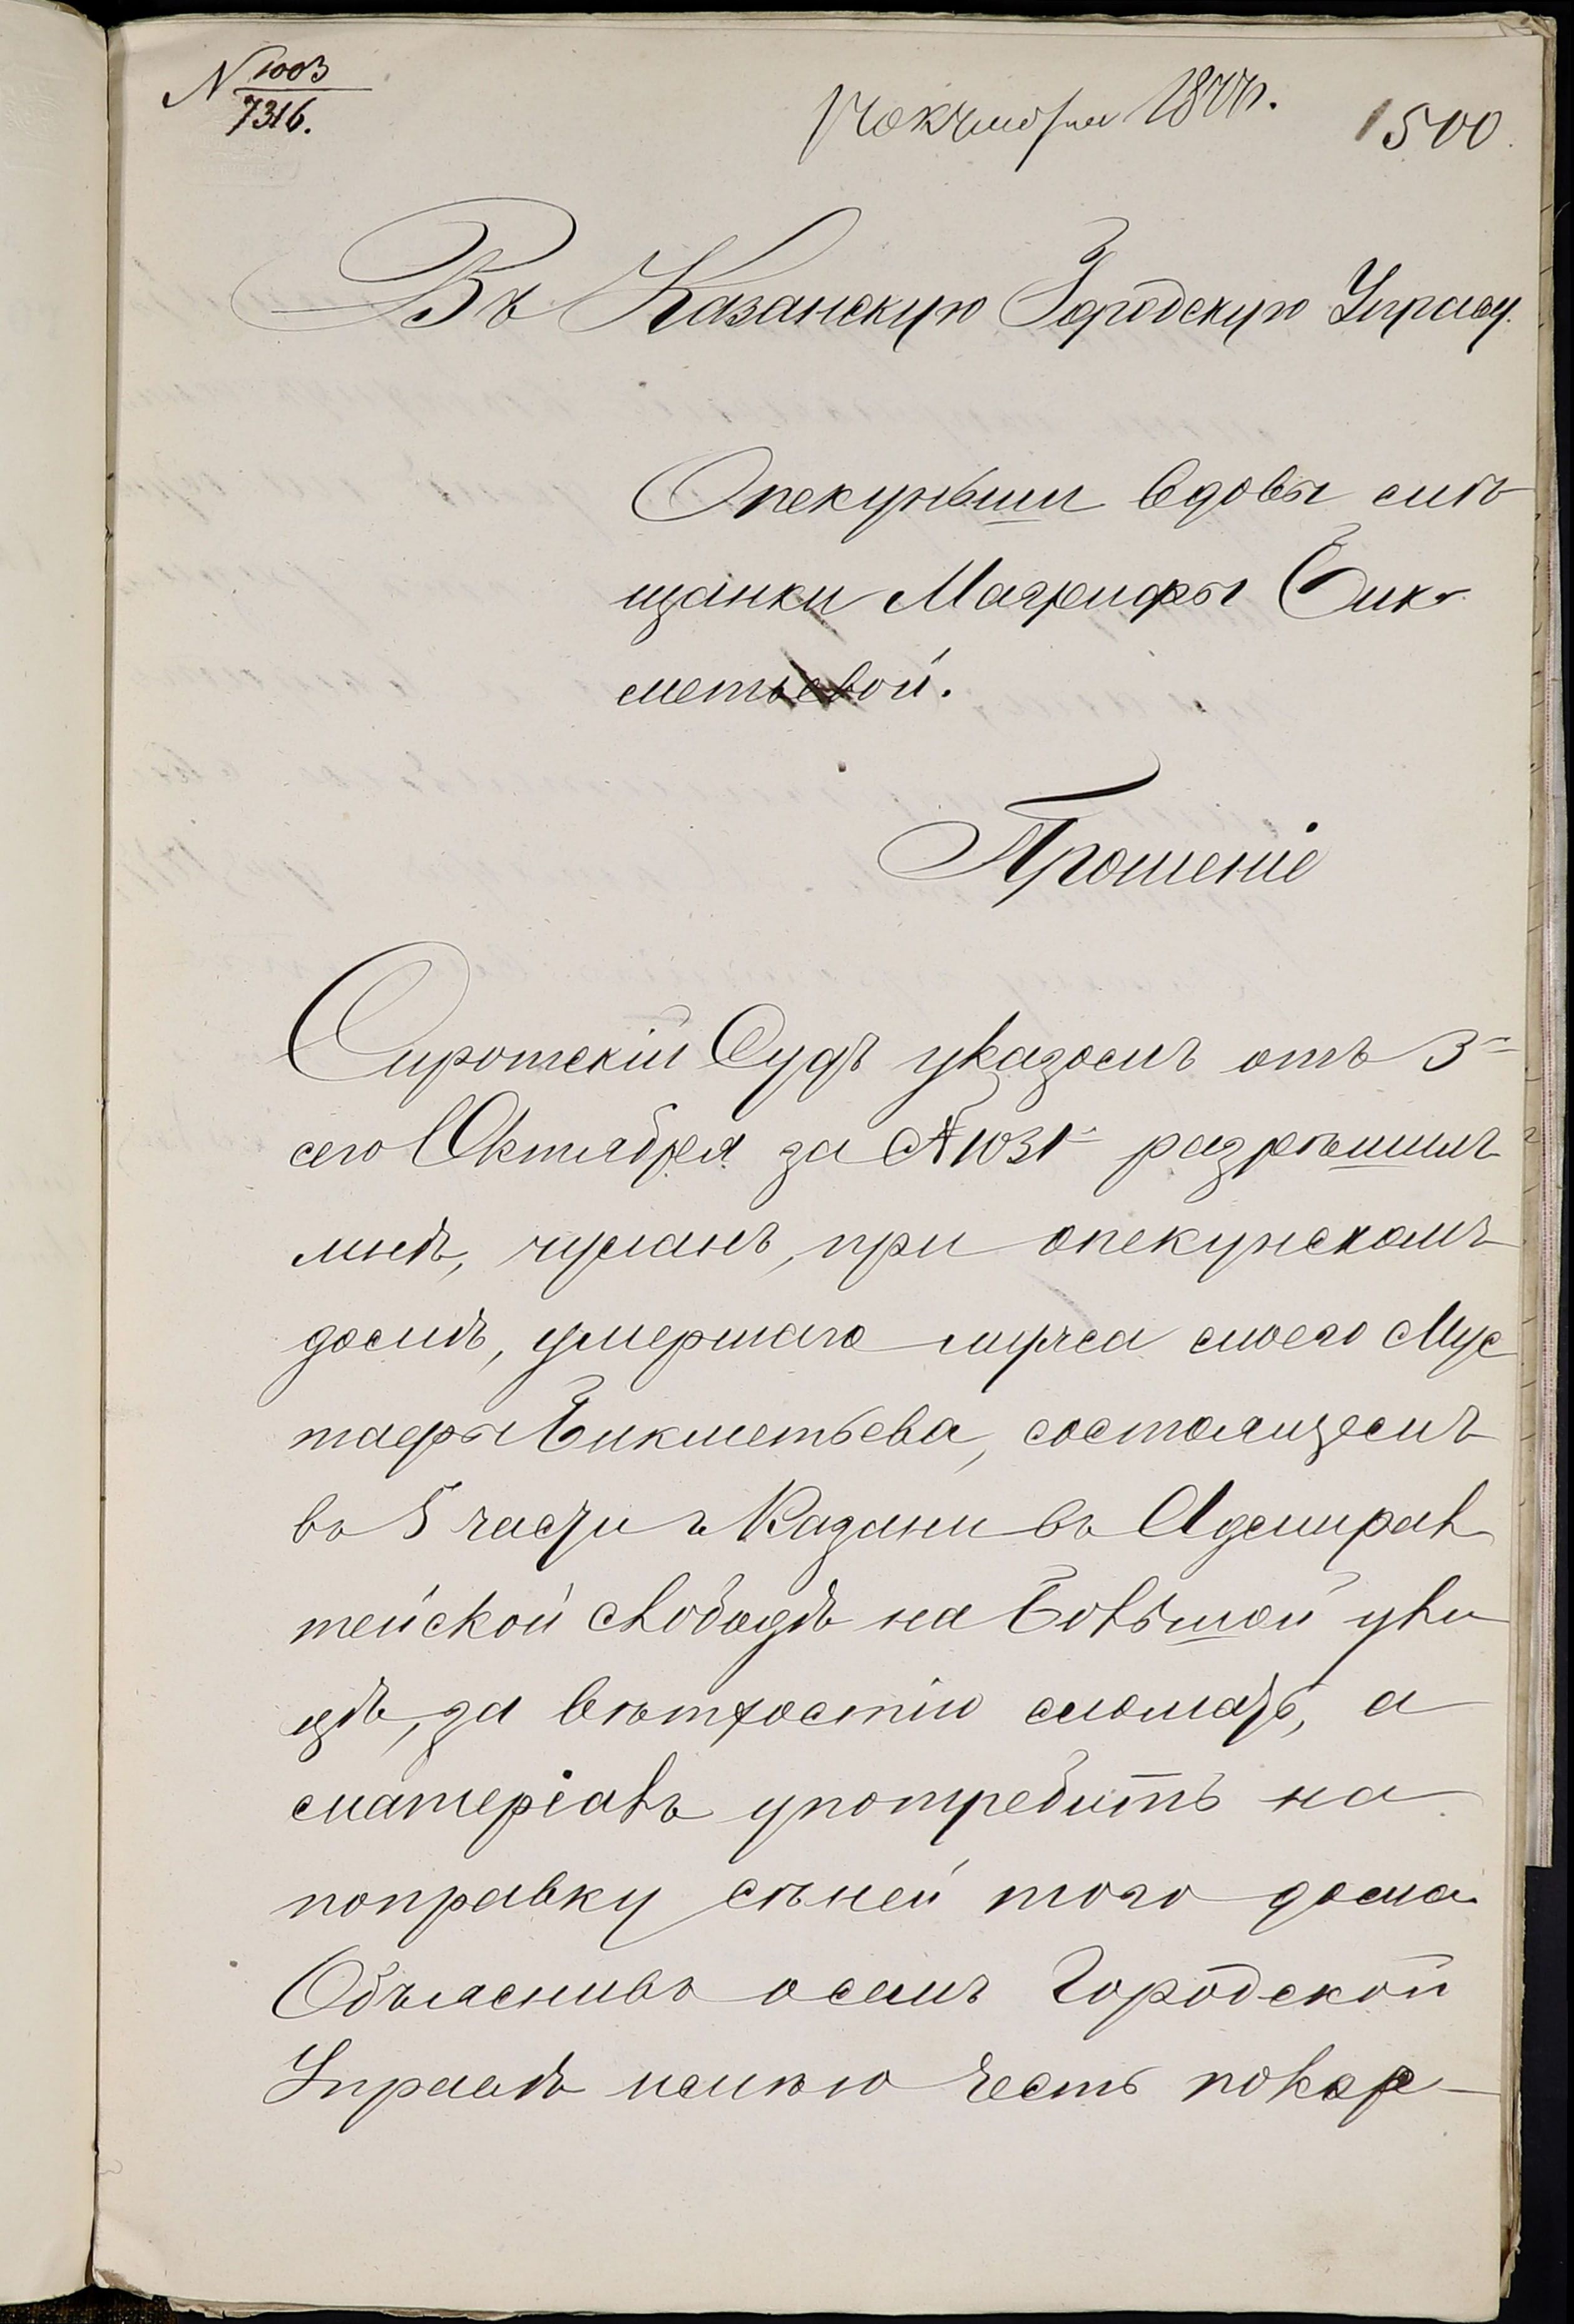 N 1003
7316.
Октября 187
1500
Въ Казанскую Городскую Управу.
Опекунши вдовы мѣ
щанки Магрифы Бик
метьевой.
Прошеніе
Сиротскій Судъ указомъ отъ 3
сего Октября за № 1031 разрѣшилъ
мнѣ, чуланъ, при опекунскомъ
домѣ, умершаго мужа моего Мус
тафы Бикметьева, состоящемъ
въ 5 части г Казани въ Адмирал
тейской слободѣ на Большой ули
цѣ, за вѣтхостію сломать, а
матеріалъ употребить на
поправку сѣней того дома
Объяснивъ осемъ Городской
Управѣ имѣю честь покор-